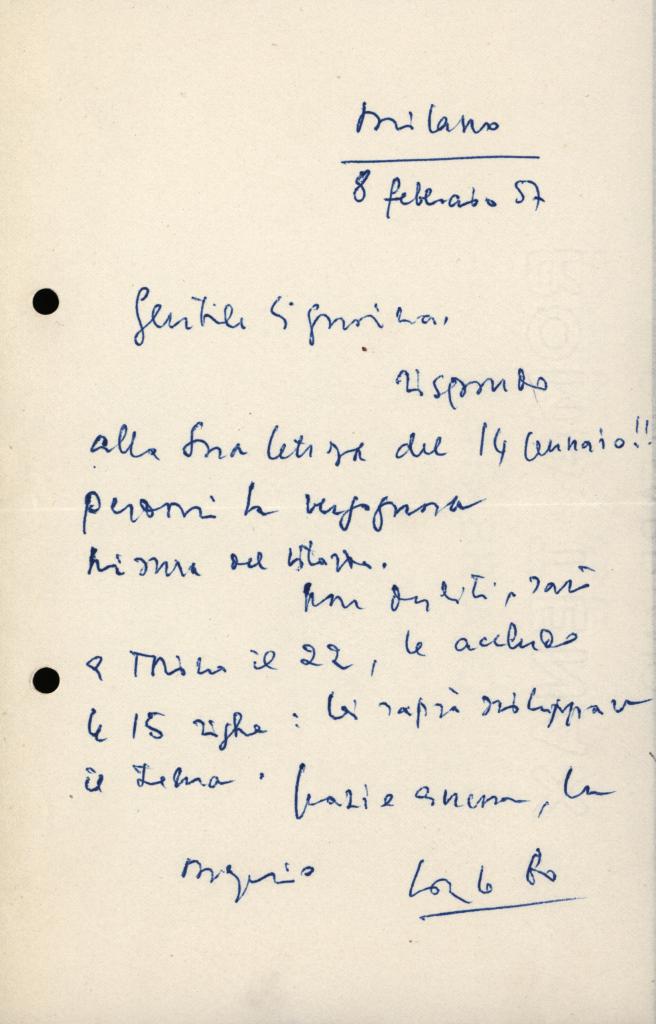 Milano
8 febbraio 57
Gentile Signorina,
rispondo
alla Sua lettera del 14 Gennaio!!
perdoni la vergognosa
misura del ritardo.
Non dubiti, sarò
a Torino il 22, le accludo
le 15 righe: lei saprà sviluppare
il tema. Grazie ancora,